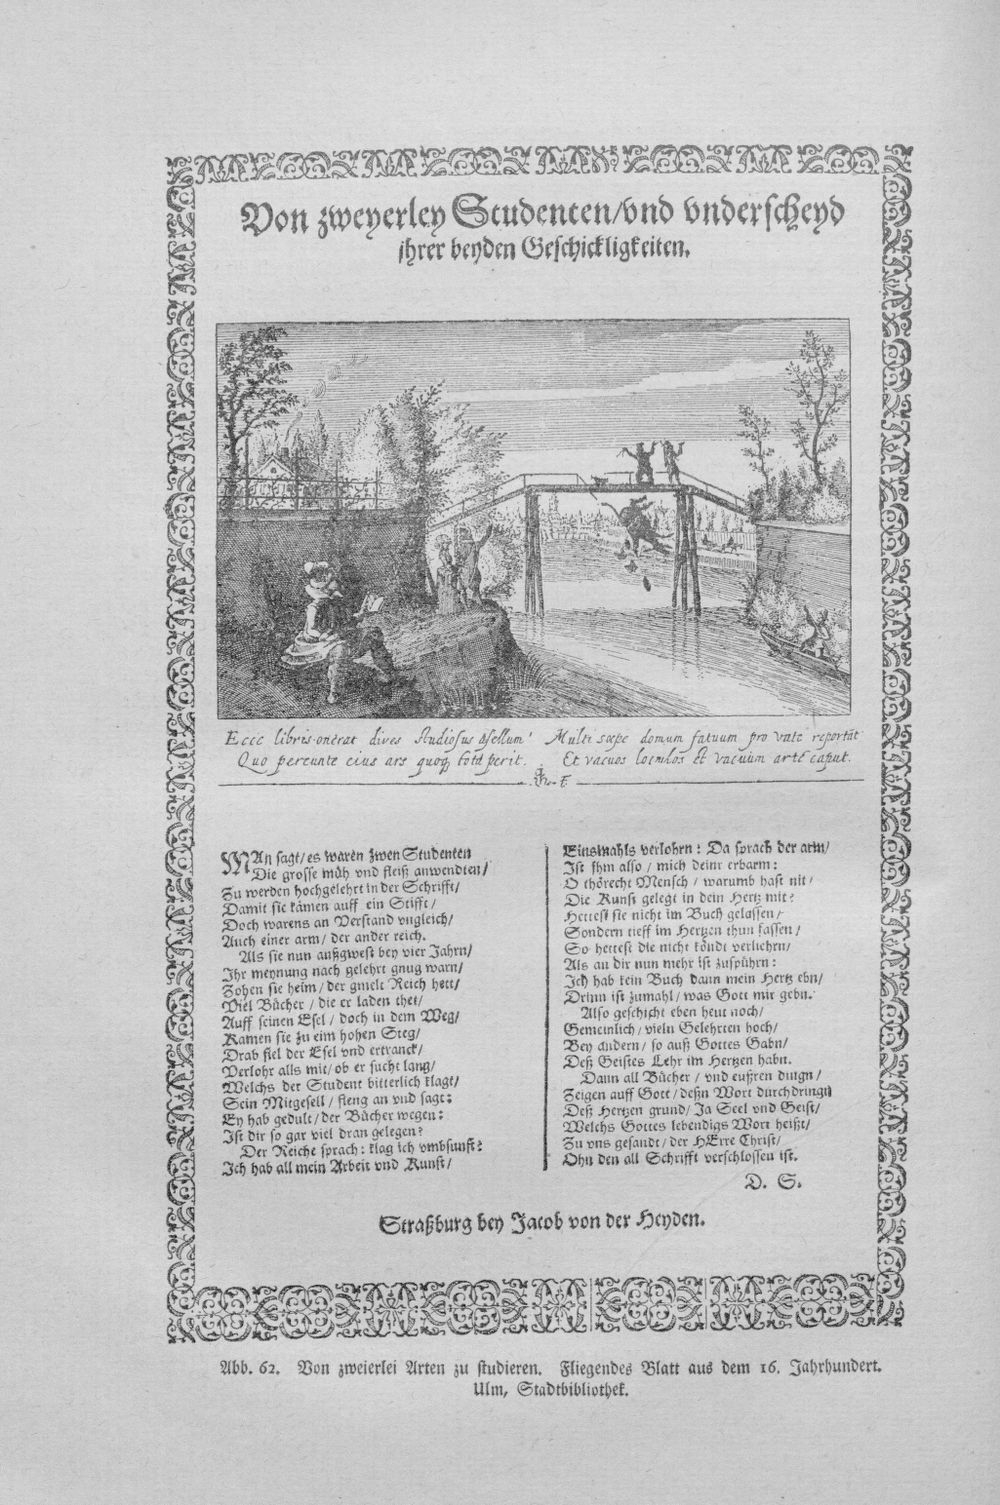 Von zweyerley Studenten/vnd vnderscheyd
jhrer beyden Geschickligkeiten.
Ecce libris onerat dives studiosus asellum!
Quo pereunte eius ars quoq, tota perit.
Multi sæpe domum fatuum pro vate reportāt
Et vacuos loculos et vacuum artē caput.
MAn sagt/es waren zwen Studenten
Die grosse müh vnd fleiß anwendten/
Zu werden hochgelehrt in der Schrifft/
Damit sie kämen auff ein Stifft/
Doch warens an Verstand vngleich/
Auch einer arm/ der ander reich.
Als sie nun außgwest bey vier Jahrn/
Ihr meynung nach gelehrt gnug warn/
Zohen sie heim/ der gmelt Reich hett/
Viel Bücher/ die er laden thet/
Auff seinen Esel/ doch in dem Weg/
Kamen sie zu eim hohen Steg/
Drab fiel der Esel vnd ertranck/
Verlohr alls mit/ ob er sucht lang/
Welchs der Student bitterlich klagt/
Sein Mitgesell/ fieng an vnd sagt:
Ey hab gedult/ der Bücher wegen:
Ist dir so gar viel dran gelegen?
Der Reiche sprach: klag ich vmbsunst?
Ich hab all mein Arbeit vnd Kunst/
Einsmahls verlohrn: Da sprach der arm/
Ist jhm also/ mich deinr erbarm:
O thörecht Mensch/ warumb hast nit/
Die Kunst gelegt in dein Hertz mit?
Hettest sie nicht im Buch gelassen/
Sondern tieff im Hertzen thun fassen/
So hettest die nicht köndt verliehrn/
Als an dir nun mehr ist zuspührn:
Ich hab kein Buch dann mein Hertz ebn/
Drinn ist zumahl/ was Gott mir gebn.
Also geschicht eben heut noch/
Gemeinlich/ vieln Gelehrten hoch/
Bey andern/ so auß Gottes Gabn/
Deß Geistes Lehr im Hertzen habn.
Dann all Bücher/ vnd eußren dingn/
Zeigen auff Gott/ deßn Wort durchdringn
Deß Hertzen grund/ Ja Seel vnd Geist/
Welchs Gottes lebendigs Wort heißt/
Zu vns gesandt/ der HErre Christ/
Ohn den all Schrifft verschlossen ist.
D. S.
Straßburg bey Jacob von der Heyden.
Abb. 62. Von zweierlei Arten zu studieren. Fliegendes Blatt aus dem 16. Jahrhundert.
Ulm, Stadtbibliothek.